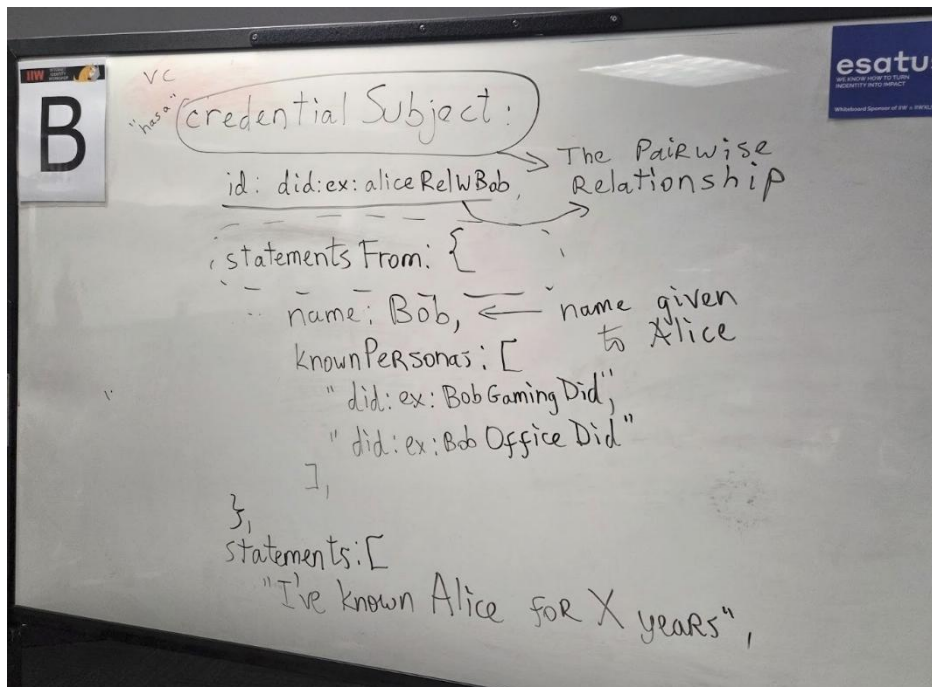 IIW
B
esatus
WE KNOW HOW TO TURN
INDENTITY INTO IMPACT
VC
"has a"
credential Subject:
The Pairwise
Relationship
id: did:ex:aliceRelWBob,
statements From: {
name: Bob,
name given
to Alice
knownPersonas: [
"did:ex:BobGamingDid",
"did:ex:Bob Office Did"
],
},
statements: [
"I've known Alice for X years",